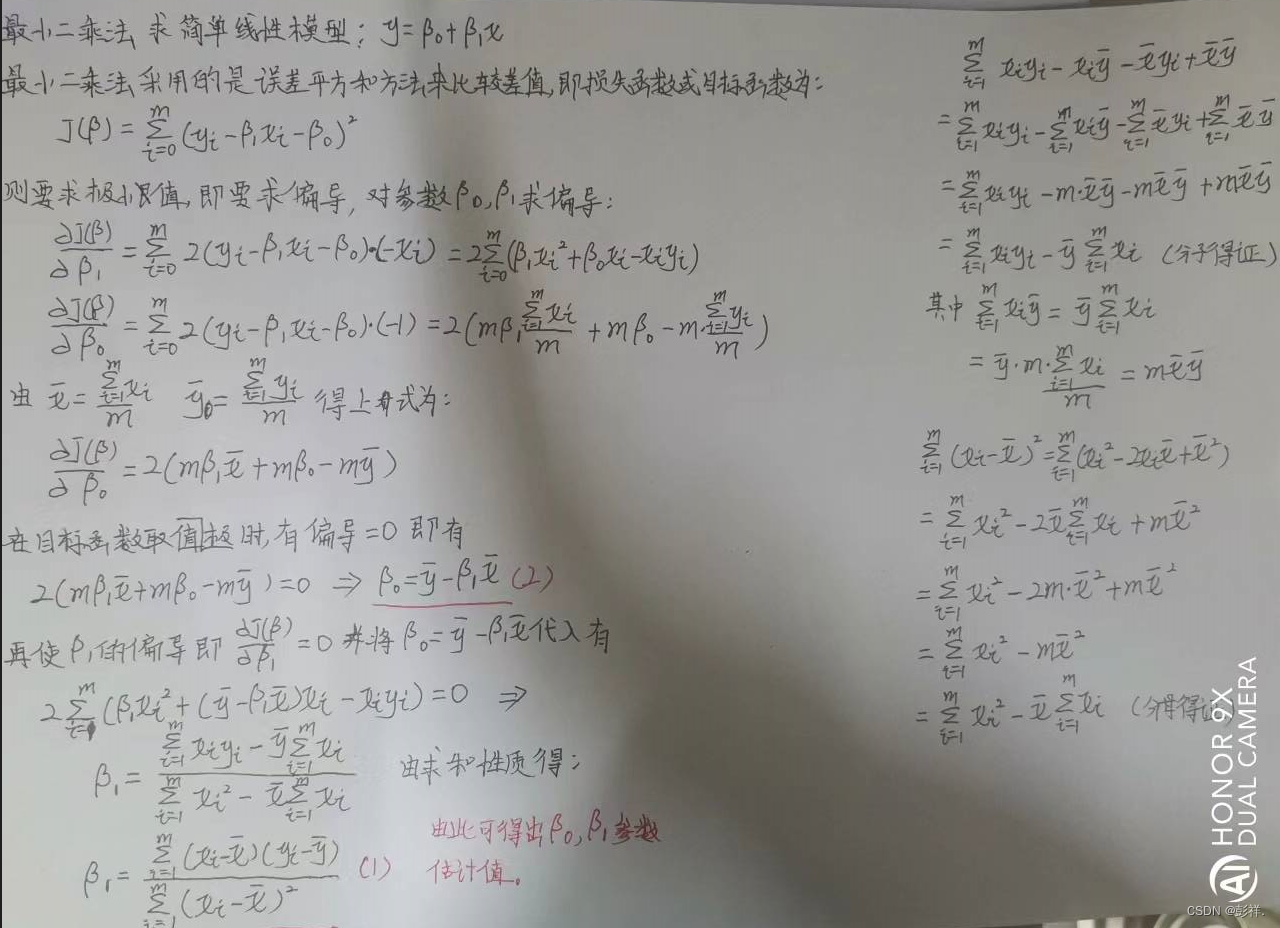 最小二乘法,求简单线性模型:y=β₀+β₁x
最小二乘法采用的是误差平方和方法来比较差值,即损失函数或目标函数为:
J(β)=∑_{i=0}^{m}(yi-β₁xi-β₀)²
则要求极小值,即要求偏导,对参数β₀,β₁求偏导:
∂J(β)/∂β₁=∑_{i=0}^{m}2(yi-β₁xi-β₀)·(-xi)=2∑_{i=0}^{m}(β₁xi²+β₀xi-xiyi)
∂J(β)/∂β₀=∑_{i=0}^{m}2(yi-β₁xi-β₀)·(-1)=2(mβ₁∑_{i=1}^{m}xi/m+mβ₀-m·∑_{i=1}^{m}yi/m)
由 x̄=∑_{i=1}^{m}xi/m ȳ=∑_{i=1}^{m}yi/m 得上式为:
∂J(β)/∂β₀=2(mβ₁x̄+mβ₀-mȳ)
在目标函数取值极时,有偏导=0即有
2(mβ₁x̄+mβ₀-mȳ)=0 ⇒ β₀=ȳ-β₁x̄ (2)
再使β₁的偏导即 ∂J(β)/∂β₁=0 并将β₀=ȳ-β₁x̄代入有
2∑_{i=0}^{m}(β₁xi²+(ȳ-β₁x̄)xi-xiyi)=0 ⇒
β₁=(∑_{i=1}^{m}xiyi-ȳ∑_{i=1}^{m}xi)/(∑_{i=1}^{m}xi²-x̄∑_{i=1}^{m}xi) 由求和性质得:
β₁=∑_{i=1}^{m}(xi-x̄)(yi-ȳ)/∑_{i=1}^{m}(xi-x̄)² (1)
由此可得出β₀,β₁参数
估计值。
∑_{i=1}^{m}xiyi-xiȳ-x̄yi+x̄ȳ
=∑_{i=1}^{m}xiyi-∑_{i=1}^{m}xiȳ-∑_{i=1}^{m}x̄yi+∑_{i=1}^{m}x̄ȳ
=∑_{i=1}^{m}xiyi-m·x̄ȳ-mx̄ȳ+mx̄ȳ
=∑_{i=1}^{m}xiyi-ȳ∑_{i=1}^{m}xi (分子得证)
其中∑_{i=1}^{m}xiȳ=ȳ∑_{i=1}^{m}xi
=ȳ·m·∑_{i=1}^{m}xi/m=mx̄ȳ
∑_{i=1}^{m}(xi-x̄)²=∑_{i=1}^{m}(xi²-2xix̄+x̄²)
=∑_{i=1}^{m}xi²-2x̄∑_{i=1}^{m}xi+mx̄²
=∑_{i=1}^{m}xi²-2m·x̄²+mx̄²
=∑_{i=1}^{m}xi²-mx̄²
=∑_{i=1}^{m}xi²-x̄∑_{i=1}^{m}xi (分母得证)
HONOR 9X
DUAL CAMERA
CSDN @彭祥.